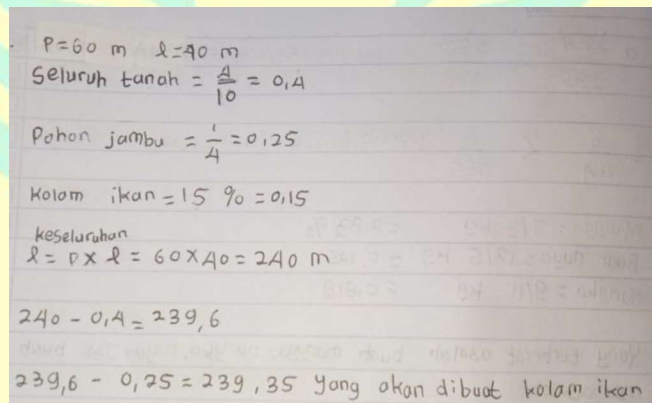 P=60 m l=40 m
Seluruh tanah = 4/10 = 0,4
Pohon jambu = 1/4 = 0,25
Kolam ikan = 15 % = 0,15
keseluruhan
l = p x l = 60 x 40 = 240 m
240 - 0,4 = 239,6
239,6 - 0,25 = 239,35 yang akan dibuat kolam ikan